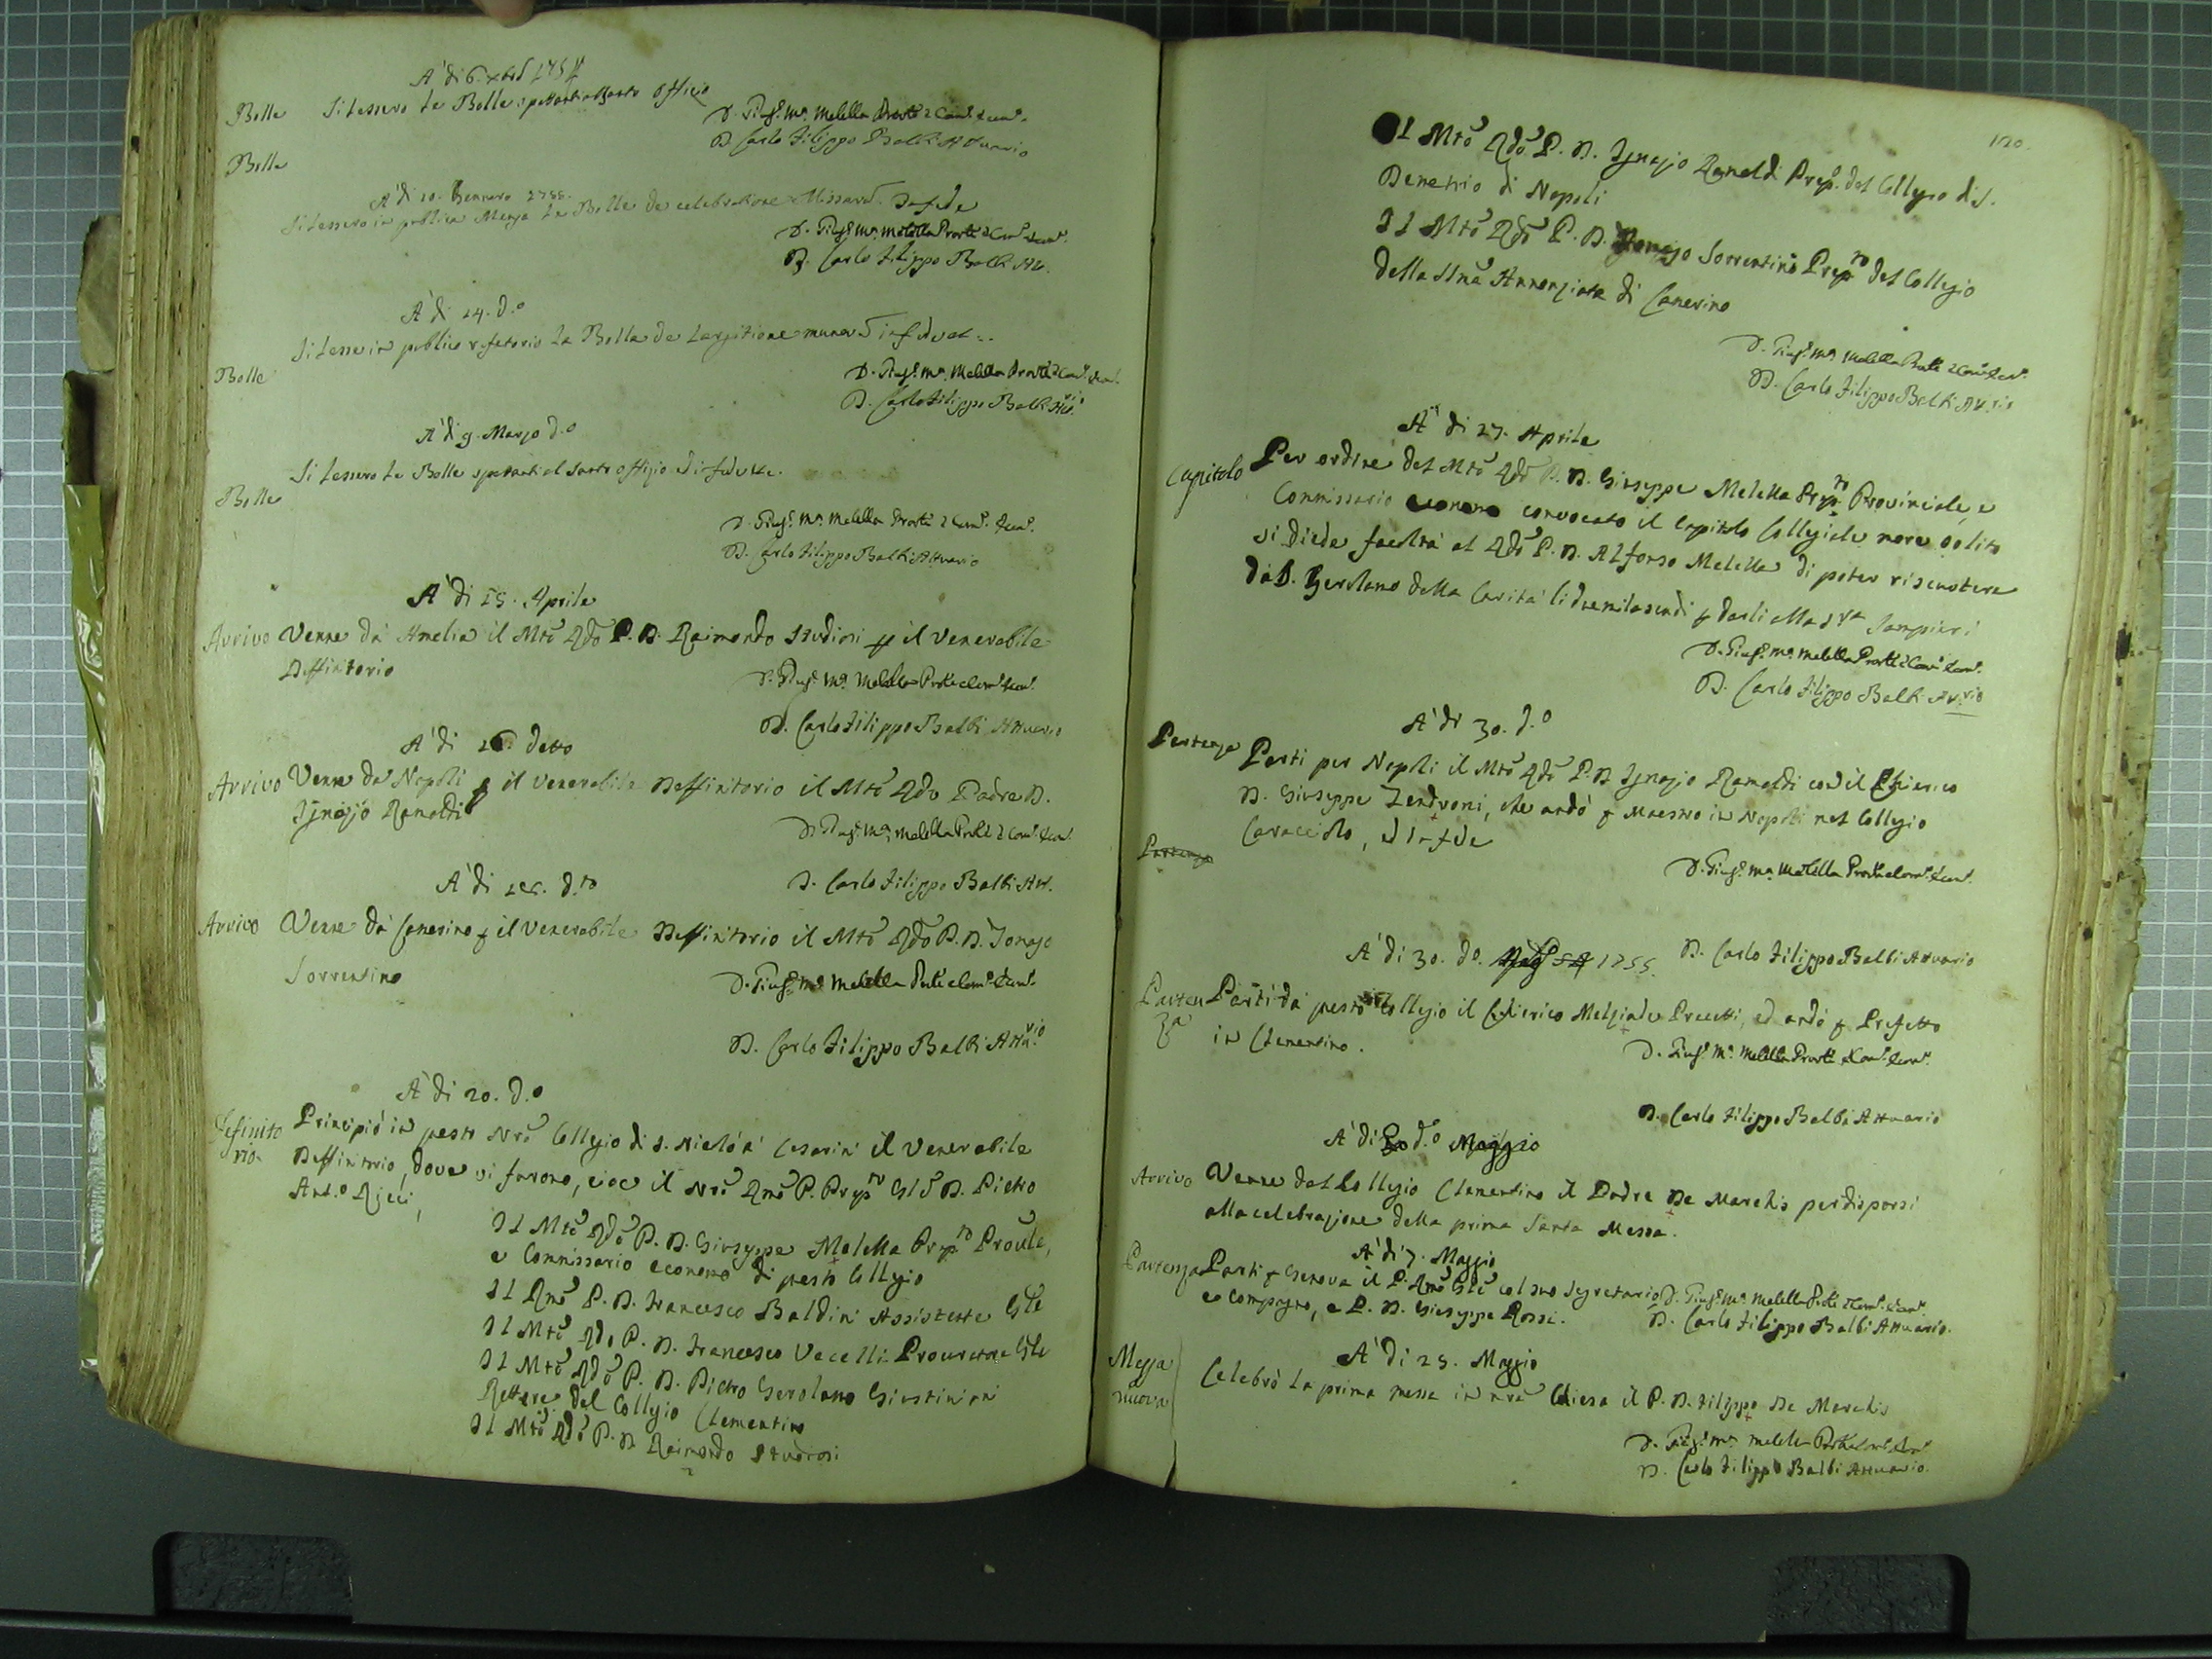 A' di 6. xbrē 1754
Bolle Si lessero le Bolle spettanti al Santo Officio
D. Gius.e M.a Melella
D. Carlo Filippo Balbi Attuario
Bolle
A' di 10. Gennaro 1755.
Si lessero in publica Mensa le Bolle de celebratione Missarū. In fede
D. Gius.e M.a Melella
D. Carlo Filippo Balbi Att.
A' di 14. d.o
Bolle Si lesse in publico refetorio la Bolla de largitione munerū in fede et..
D. Gius.e M.a Melella
D. Carlo Filippo Balbi Att.rio
A' di 9. Marzo d.o
Bolle Si lessero le Bolle spettanti al Santo Offizio ed in fede etc.
D. Gius.e M.a Melella
D. Carlo Filippo Balbi Attuario
A' di 15. Aprile
Arrivo Venne da Amelia il Mto Rdo P. D. Raimondo Studiosi p il Venerabile
Deffinitorio
D. Gius.e M.a Melella
D. Carlo Filippo Balbi Attuario
A' di 16. detto
Arrivo Venne da Napoli p il Venerabile Deffinitorio il Mto Rdo Padre D.
Ignazio Ramoldi
D. Gius.e M.a Melella
D. Carlo Filippo Balbi Att.
A' di d.to
Arrivo Venne da Camerino p il Venerabile Deffinitorio il Mto Rdo P. D. Ignazo
Sorrentino
D. Gius.e M.a Melella
D. Carlo Filippo Balbi Attu.rio
A' di 20. d.o
Definito Principiò in questo nrō Collegio di S. Nicolò a' Cesarini il Venerabile
rio. Deffinitorio, dove vi furono, cioè il nrō Rmō P. Prep.to Glē D. Pietro
Ant.o Rijeci,
Il Mtō Rdō P. D. Giuseppe Melella Prep.to Provle,
e Commissario economo di questo Collegio
Il Rmō P. D. Francesco Baldini Assistente Gle
Il Mtō Rdo P. D. Francesco Vecelli Procuratore Gle
Il Mtō Rdō P. D. Pietro Gerolamo Giustiniani
Rettore del Collegio Clementino
Il Mtō Rdō P. D. Raimondo Studiosi
120.
Il Mtō Rdō P. D. Ignazio Ramoldi Prep.o del Collegio di S.
Demetrio di Napoli
Il Mtō Rdō P. D. Ignazo Sorrentino Prep.to del Collegio
della SSma Annonziata di Camerino
D. Gius.e M.a Melella
D. Carlo Filippo Balbi Att.rio
A' di 27. Aprile
Capitolo Per ordine del Mtō Rdō P. D. Giuseppe Melella Prep.to Provinciale, e
Commissario economo convocato il Capitolo Collegiale more solito
si diede facoltà al Rdō P. D. Alfonso Melella di poter riscuotere
da S. Gerolamo della Carità li due mila scudi p darli alla S.ra Sampieri
D. Gius.e M.a Melella
D. Carlo Filippo Balbi Att.rio
A' di 30. d.o
Partenza Parti per Napoli il Mtō Rdō P. D. Ignazo Ramoldi con il Chierico
D. Giuseppe Zendroni, che andò p Maestro in Napoli nel Collegio
Caracciolo, ed in fede
Partenza
D. Gius.e M.a Melella
D. Carlo Filippo Balbi Attuario
A' di 30. do. 1755.
Parten Parti da questo Collegio il Chierico Melziade Precetti, ed andò p Prefetto
za in Clementino.
D. Gius.e M.a Melella
D. Carlo Filippo Balbi Attuario
A' di 30 d.o Maggio
Arrivo Venne dal Collegio Clementino il Padre De Marchis per disporsi
alla celebrazione della prima Santa Messa.
A' di 7. Maggio
Partenza Parti p Genova il P. Rmō Glē col suo Segretario
e Compagno, e P. D. Giuseppe Rossi.
D. Gius.e M.a Melella
D. Carlo Filippo Balbi Attuario.
A' di 25. Maggio
Messa Celebrò la prima messa in nrā Chiesa il P. D. Filippo De Marchis
nuova
D. Gius.e M.a Melella
D. Carlo Filippo Balbi Attuario.